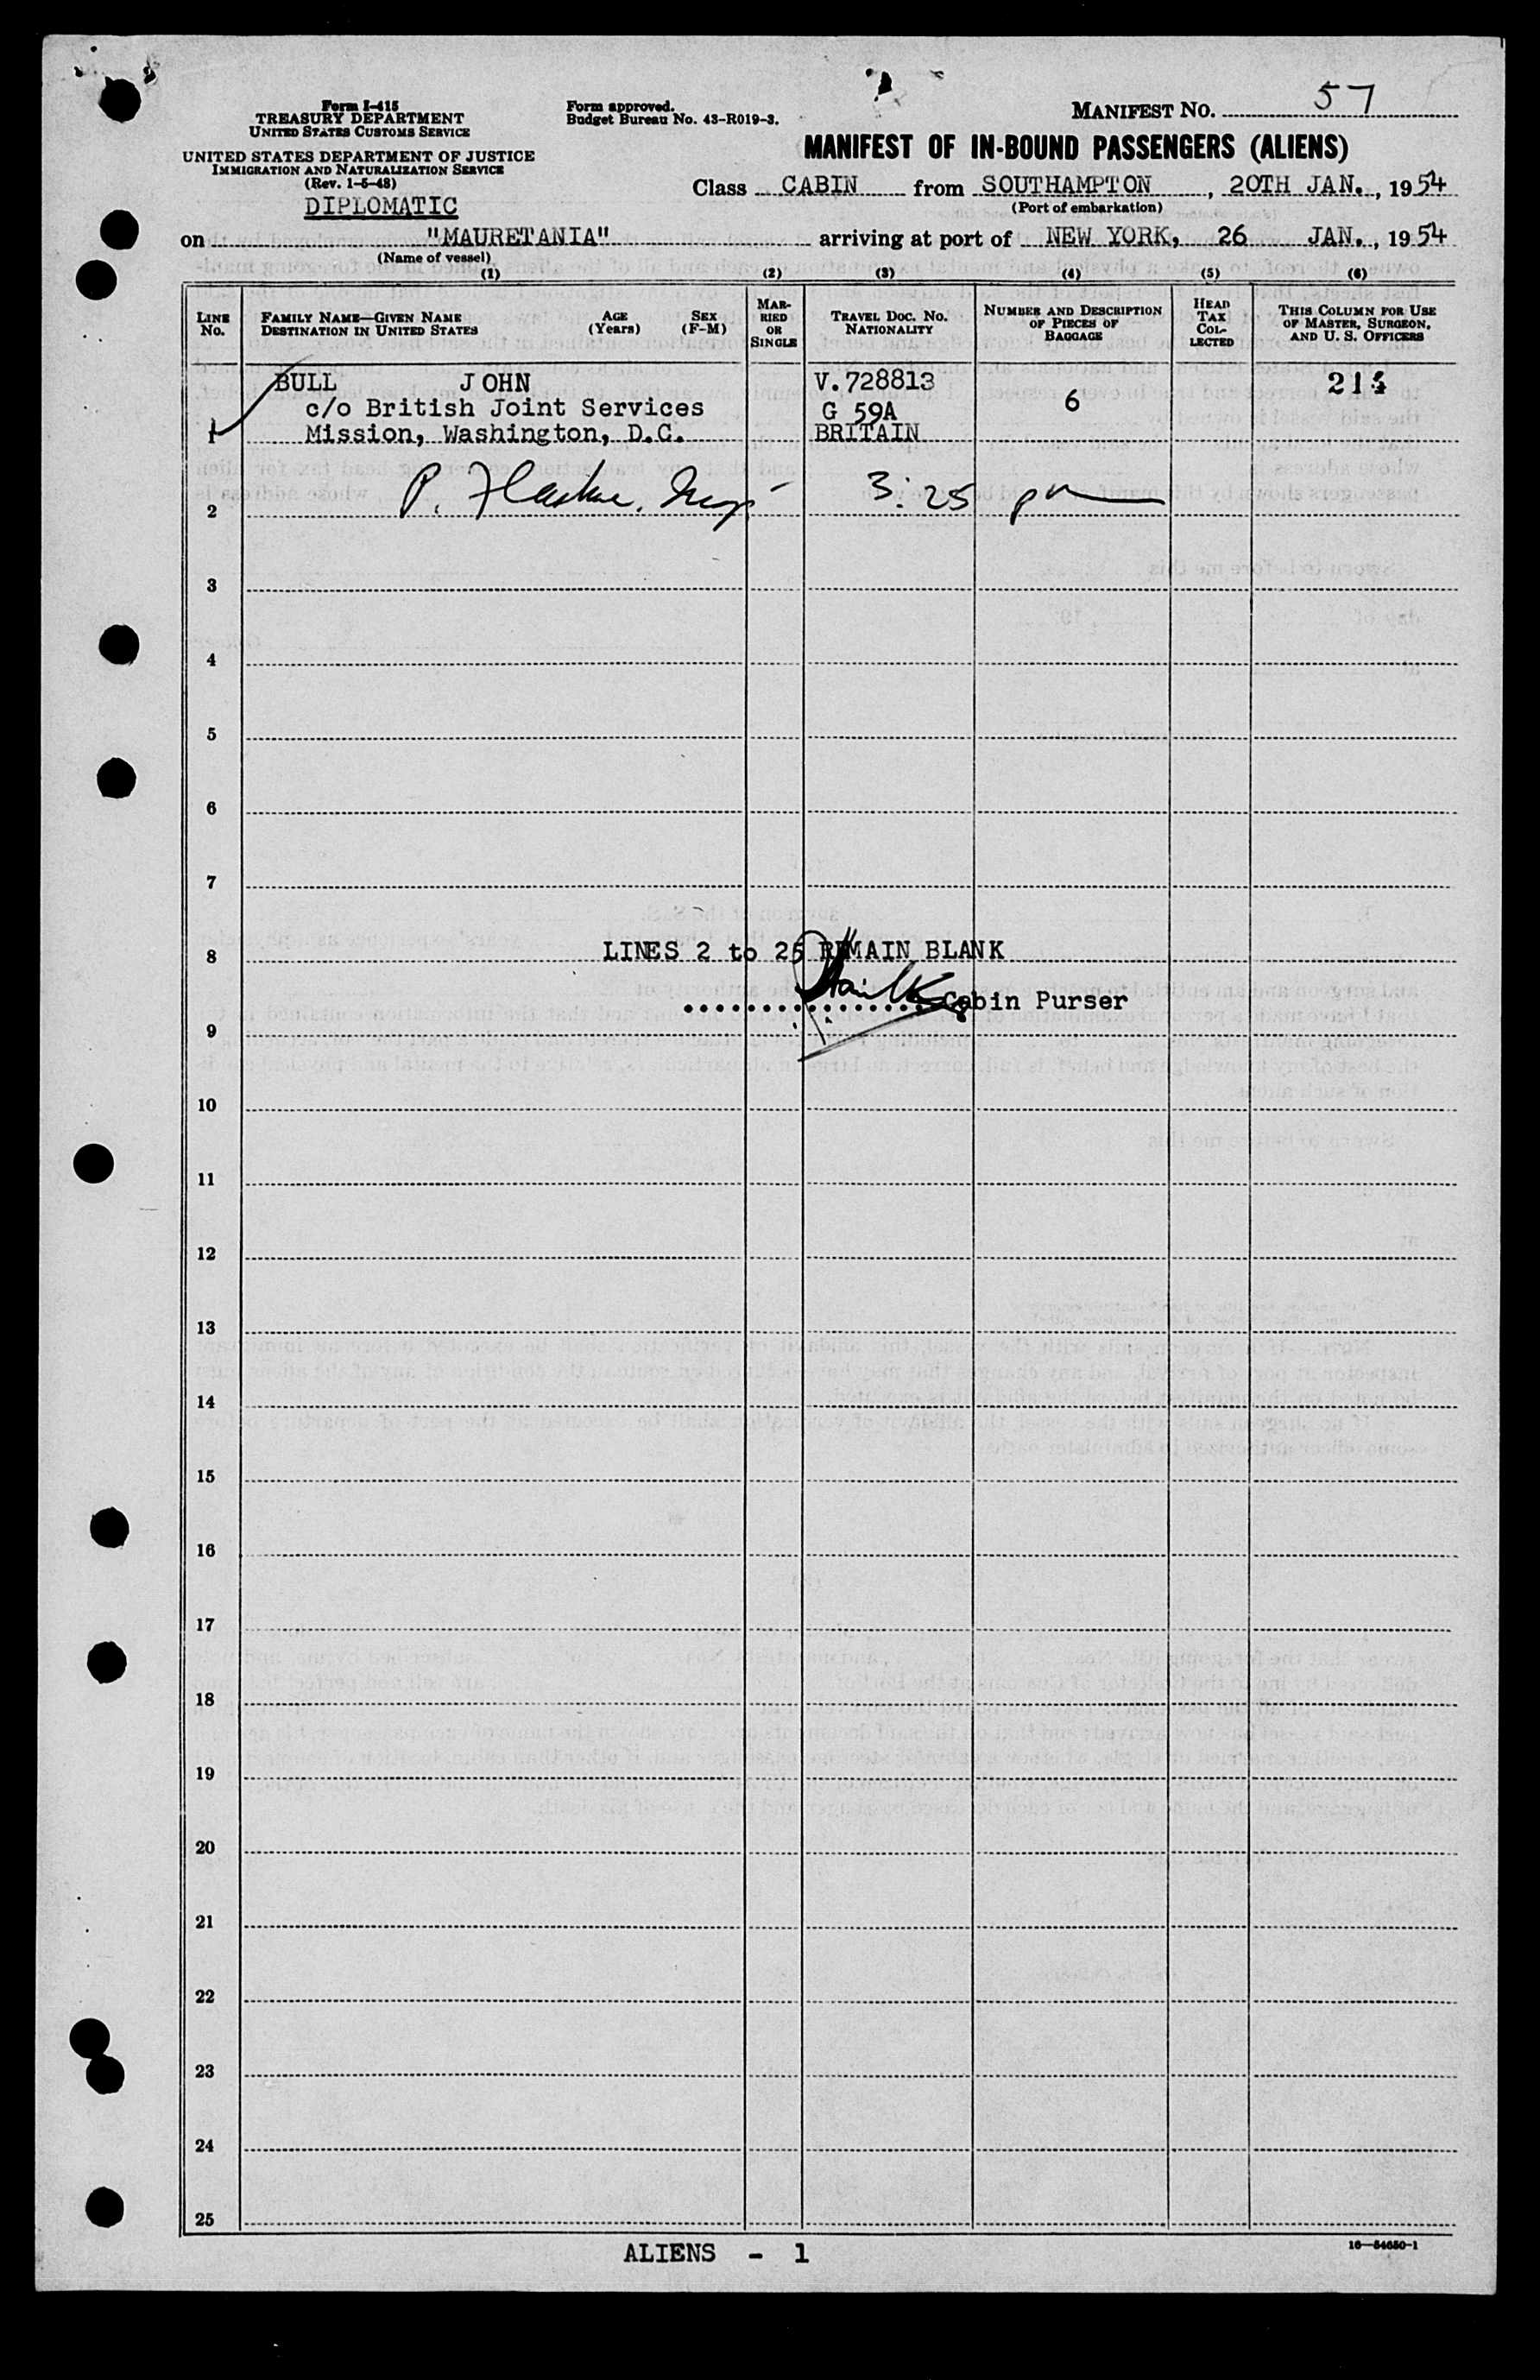 Form I-415
TREASURY DEPARTMENT
UNITED STATES CUSTOMS SERVICE
UNITED STATES DEPARTMENT OF JUSTICE
IMMIGRATION AND NATURALIZATION SERVICE
(Rev. 1-5-48)
DIPLOMATIC
Form approved.
Budget Bureau No. 43-R019-3.
MANIFEST NO. 57
MANIFEST OF IN-BOUND PASSENGERS (ALIENS)
Class CABIN from SOUTHAMPTON, 20TH JAN., 1954
(Port of embarkation)
on "MAURETANIA" arriving at port of NEW YORK, 26 JAN., 1954
(Name of vessel)
(1) (2) (3) (4) (5) (6)
LINE No. FAMILY NAME—GIVEN NAME DESTINATION IN UNITED STATES AGE (Years) SEX (F-M) MARRIED OR SINGLE TRAVEL DOC. NO. NATIONALITY NUMBER AND DESCRIPTION OF PIECES OF BAGGAGE HEAD TAX COLLECTED THIS COLUMN FOR USE OF MASTER, SURGEON, AND U. S. OFFICERS
BULL JOHN V.728813 214
c/o British Joint Services G 59A 6
1 Mission, Washington, D.C. BRITAIN
2 P. 3:25 pm
3
4
5
6
7
8 LINES 2 to 25 REMAIN BLANK
Cabin Purser
9
10
11
12
13
14
15
16
17
18
19
20
21
22
23
24
25
ALIENS - 1
16—54650-1